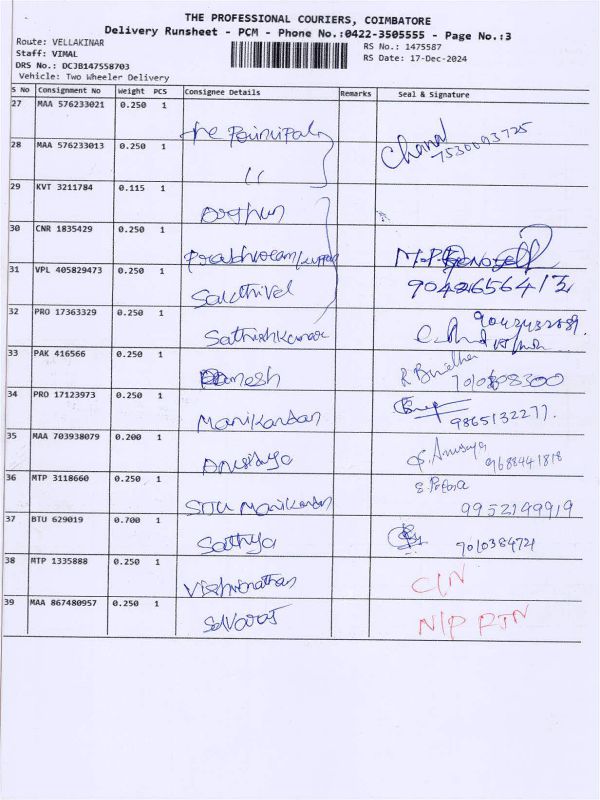 THE PROFESSIONAL COURIERS, COIMBATORE
Delivery Runsheet - PCM - Phone No.:0422-3505555 - Page No.:3
Route: VELLAKINAR
Staff: VIMAL
DRS No.: DCJB147558703
Vehicle: Two Wheeler Delivery
RS No.: 1475587
RS Date: 17-Dec-2024
S No Consignment No Weight PCS Consignee Details Remarks Seal & Signature
27 MAA 576233021 0.250 1 The Principal
28 MAA 576233013 0.250 1 " 7530093725
29 KVT 3211784 0.115 1 Arthun
30 CNR 1835429 0.250 1
31 VPL 405829473 0.250 1 Sakthivel
32 PRO 17363329 0.250 1 Sathishkumar
33 PAK 416566 0.250 1
34 PRO 17123973 0.250 1 Manikandan 9865132277.
35 MAA 703938079 0.200 1 Anusuya S. Anusuya 9688441818
36 MTP 3118660 0.250 1 Manikandan 9952199919
37 BTU 629019 0.700 1 Sathya
38 MTP 1335888 0.250 1 Vishwanathan C/N
39 MAA 867480957 0.250 1 Selvaraj N/P RTN